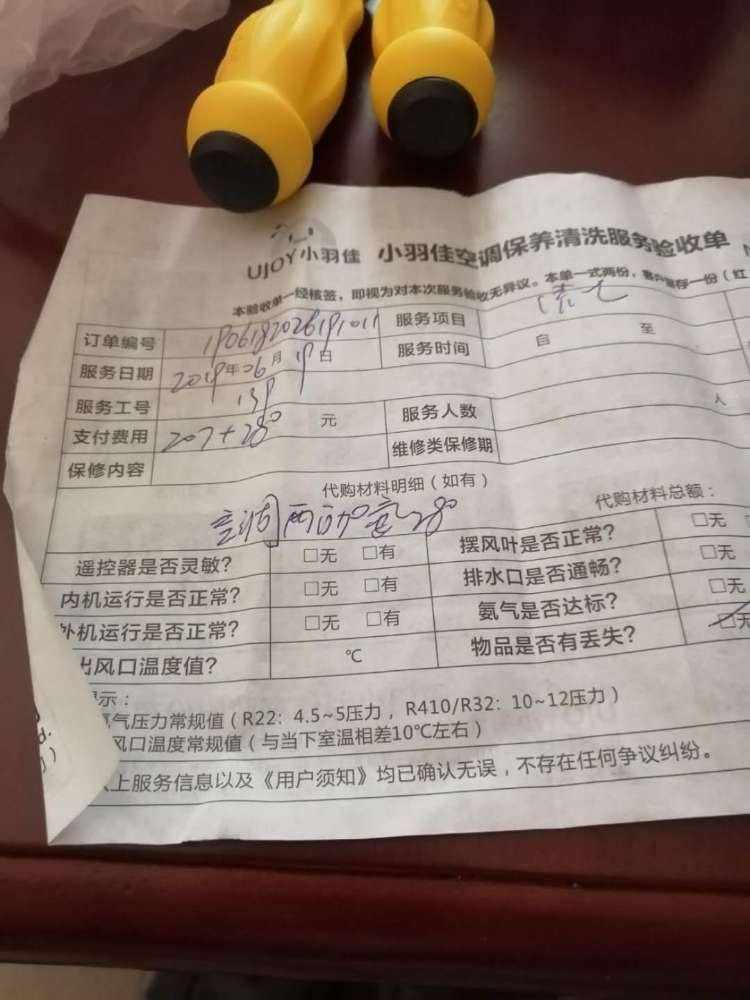 UJOY小羽佳 小羽佳空调保养清洗服务验收单
本验收单一经核签，即视为对本次服务验收无异议。本单一式两份，客户留存一份（红
订单编号 服务项目 清洗
服务日期 2019年06月19日 服务时间 自 至
服务工号 139
支付费用 207+280 元 服务人数 人
保修内容 维修类保修期
代购材料明细（如有） 代购材料总额：
空调两台加氨280
遥控器是否灵敏？ □无 □有 摆风叶是否正常？ □无
内机运行是否正常？ □无 □有 排水口是否通畅？ □无
外机运行是否正常？ □无 □有 氨气是否达标？ □无
出风口温度值？ ℃ 物品是否有丢失？ □无
示：
气压力常规值（R22：4.5~5压力，R410/R32：10~12压力）
风口温度常规值（与当下室温相差10℃左右）
上服务信息以及《用户须知》均已确认无误，不存在任何争议纠纷。